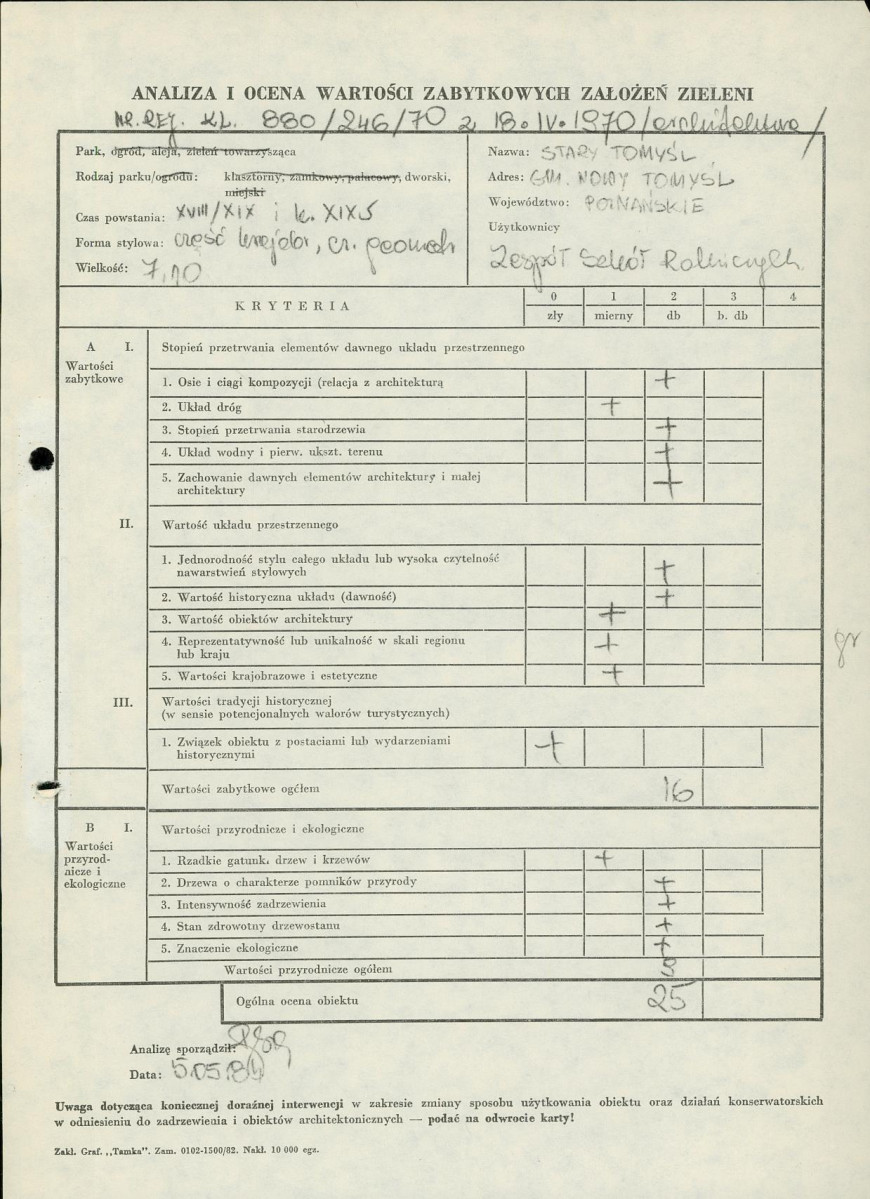 ANALIZA I OCENA WARTOŚCI ZABYTKOWYCH ZAŁOŻEŃ ZIELENI
NR. REJ. KL. 880/246/70 z 18.IV.1970 /architektura/
Park, ogród, aleja, zieleń towarzysząca
Rodzaj parku/ogrodu: klasztorny, zamkowy, pałacowy, dworski,
miejski
Czas powstania: XVIII/XIX i k. XIX
Forma stylowa: część krajobr, cz. geometr
Wielkość: 7,10
Nazwa: STARY TOMYŚL
Adres: GM. NOWY TOMYŚL
Województwo: POZNAŃSKIE
Użytkownicy
Zespół Szkół Rolniczych
KRYTERIA
0 1 2 3 4
zły mierny db b. db
A I. Stopień przetrwania elementów dawnego układu przestrzennego
Wartości
zabytkowe
1. Osie i ciągi kompozycji (relacja z architekturą +
2. Układ dróg +
3. Stopień przetrwania starodrzewia +
4. Układ wodny i pierw. ukszt. terenu +
5. Zachowanie dawnych elementów architektury i małej
architektury +
II. Wartość układu przestrzennego
1. Jednorodność stylu całego układu lub wysoka czytelność
nawarstwień stylowych +
2. Wartość historyczna układu (dawność) +
3. Wartość obiektów architektury +
4. Reprezentatywność lub unikalność w skali regionu
lub kraju +
5. Wartości krajobrazowe i estetyczne +
III. Wartości tradycji historycznej
(w sensie potencjonalnych walorów turystycznych)
1. Związek obiektu z postaciami lub wydarzeniami
historycznymi +
Wartości zabytkowe ogółem 16
B I. Wartości przyrodnicze i ekologiczne
Wartości
przyrod-
nicze i
ekologiczne
1. Rzadkie gatunki drzew i krzewów +
2. Drzewa o charakterze pomników przyrody +
3. Intensywność zadrzewienia +
4. Stan zdrowotny drzewostanu +
5. Znaczenie ekologiczne +
Wartości przyrodnicze ogółem 9
Ogólna ocena obiektu 25
Analizę sporządził:
Data: 5.05.84
Uwaga dotycząca koniecznej doraźnej interwencji w zakresie zmiany sposobu użytkowania obiektu oraz działań konserwatorskich
w odniesieniu do zadrzewienia i obiektów architektonicznych — podać na odwrocie karty!
Zakł. Graf. „Tamka". Zam. 0102-1500/82. Nakł. 10 000 egz.